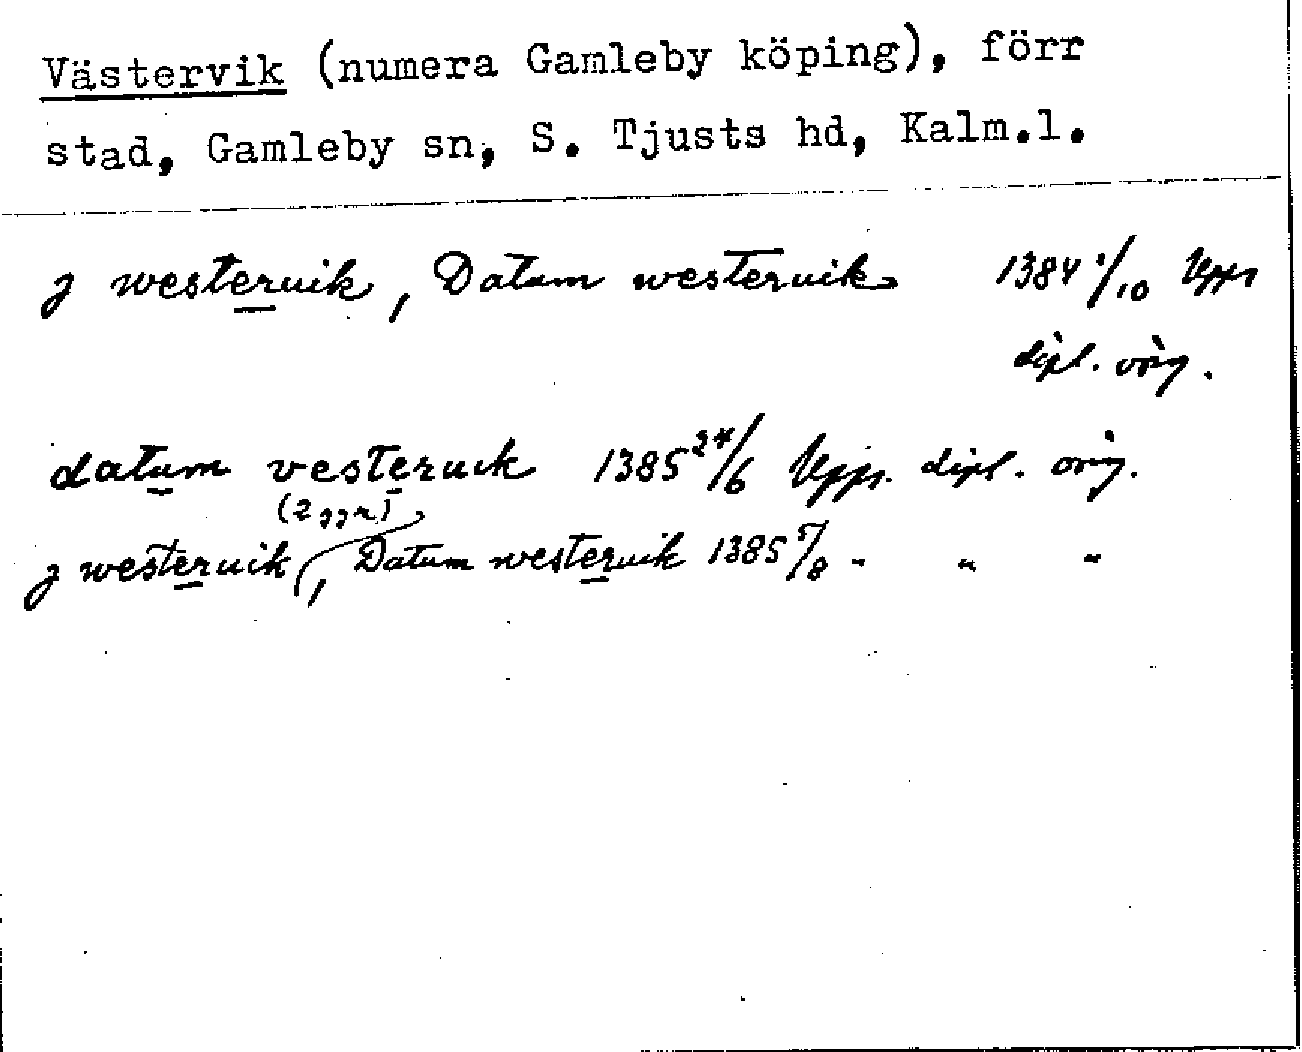 Västervik (numera Gamleby köping), förr
stad, Gamleby sn, S. Tjusts hd, Kalm.l.
j westeruik, Datum westeruik 1384 1/10 Upps
dipl. orig.
datum vesteruik 1385 24/6 Upps. dipl. orig.
(2 ggr)
j westeruik, Datum westeruik 1385 5/8 " " "